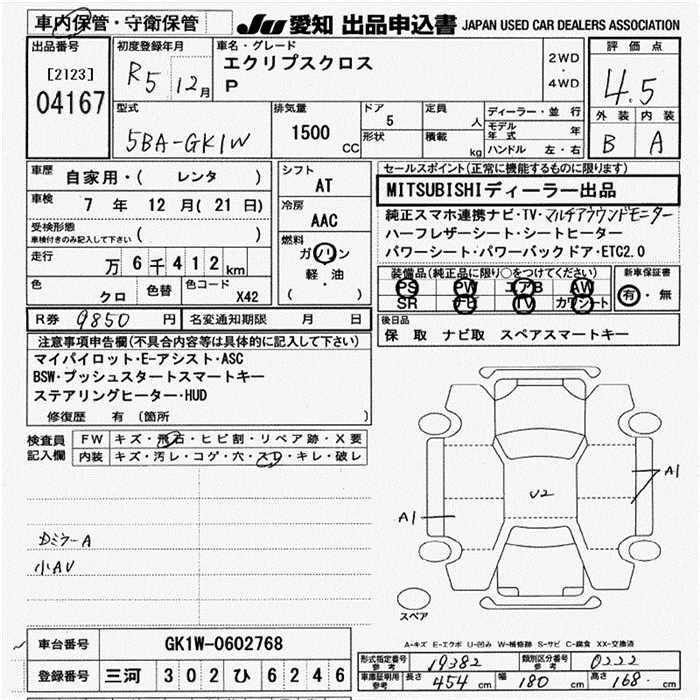 車内保管・守衛保管
JU 愛知 出品申込書 JAPAN USED CAR DEALERS ASSOCIATION
出品番号
[2123]
04167
初度登録年月
R5 12月
車名・グレード
エクリプスクロス
P
2WD
・
4WD
評価点
4.5
外装 内装
B A
型式
5BA-GK1W
排気量
1500 CC
ドア 5
形状
定員 人
積載 kg
ディーラー・並行
モデル年式 年
ハンドル 左・右
車歴 自家用・( レンタ )
車検 7年 12月( 21日)
受検形態
車検付きのみ記入して下さい ( )
走行 万6千412km
色 クロ 色替 色コード X42
シフト
AT
冷房
AAC
燃料
ガソリン
軽・油
( )
セールスポイント(正常に機能するものに限ります)
MITSUBISHIディーラー出品
純正スマホ連携ナビ・TV・マルチアラウンドモニター
ハーフレザーシート・シートヒーター
パワーシート・パワーバックドア・ETC2.0
装備品(純正品に限り○をつけてください)
PS PW エアB AW
SR ナビ TV カワシート
新車保証書
有・無
R券 9850円 名変通知期限 月 日
後日品
保 取 ナビ取 スペアスマートキー
注意事項申告欄(不具合内容等は具体的に記入して下さい)
マイパイロット・E-アシスト・ASC
BSW・プッシュスタートスマートキー
ステアリングヒーター・HUD
修復歴 有 (箇所 )
検査員記入欄
FW キズ・飛石・ヒビ割・リペア跡・X要
内装 キズ・汚レ・コゲ・穴・スレ・キレ・破レ
DミラーA
小AU
U2
A1
A1
スペア
A-キズ E-エクボ U-凹み W-補修跡 S-サビ C-腐食 XX-交換済
車台番号 GK1W-0602768
登録番号 三河 302 ひ 6246
形式指定番号 参考 19382 類別区分番号 参考 0222
車庫証明用 参考 長さ 454cm 幅 180cm 高さ 168cm